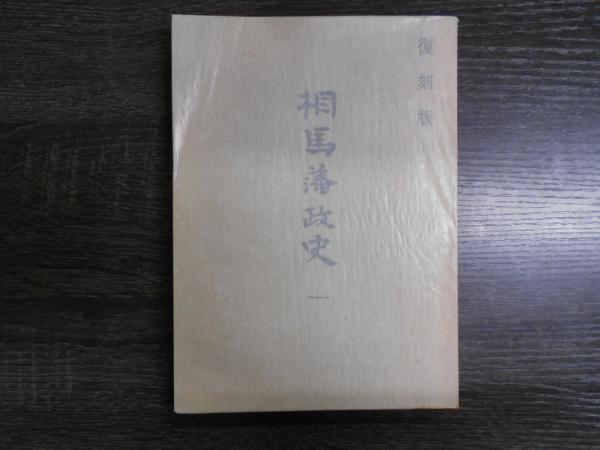 復刻版
相馬藩政史
一